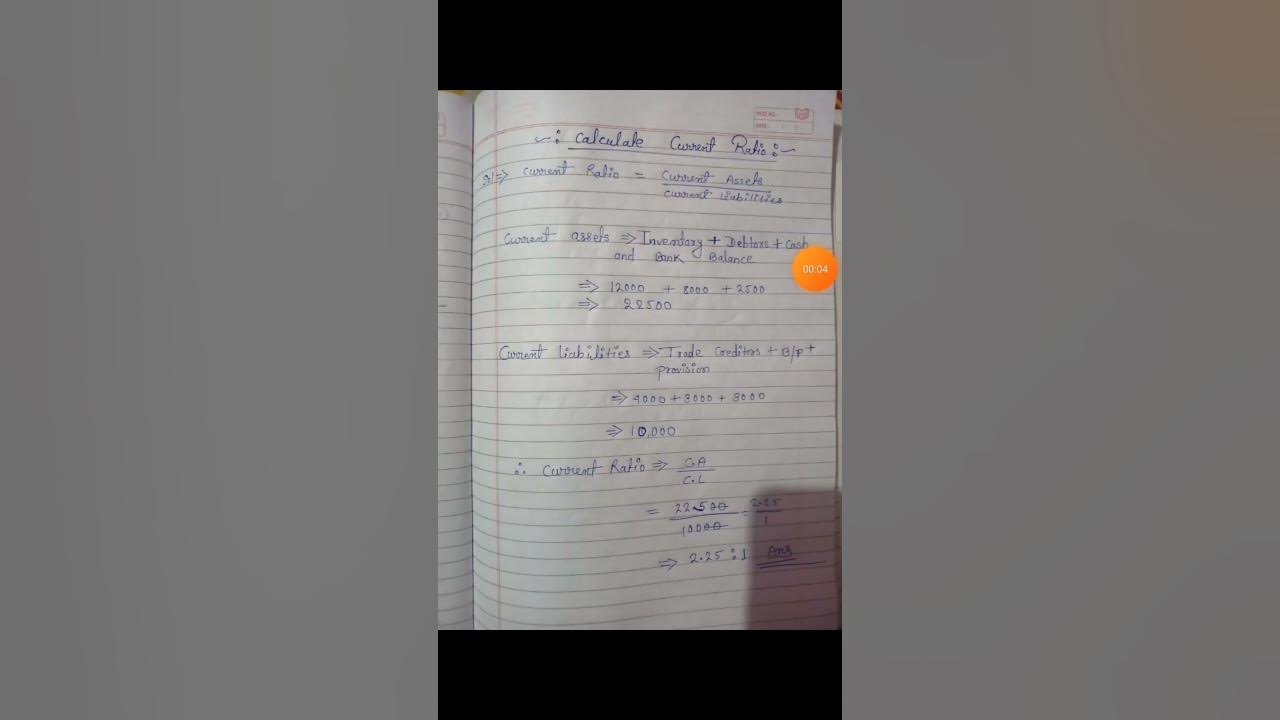 PAGE NO.:
DATE: / /
~: Calculate Current Ratio :~
Sol ⇒ Current Ratio = Current Assets
Current Liabilities
Current assets ⇒ Inventory + Debtors + Cash
and Bank Balance
⇒ 12000 + 8000 + 2500
⇒ 22500
Current liabilities ⇒ Trade Creditors + B/P +
provision
⇒ 4000 + 3000 + 3000
⇒ 10,000
∴ Current Ratio ⇒ C.A
C.L
= 22500 = 2.25
10000 1
⇒ 2.25 : 1 Ans
00:04